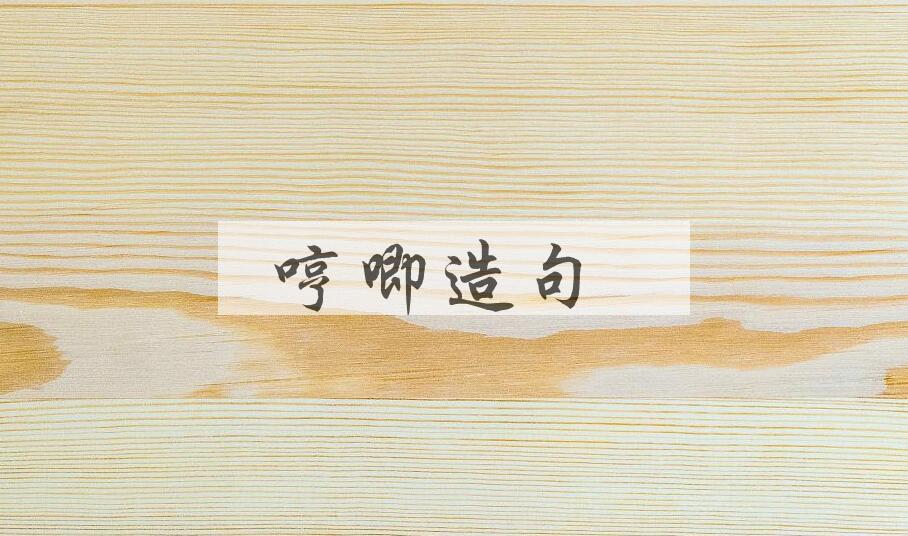 哼唧造句